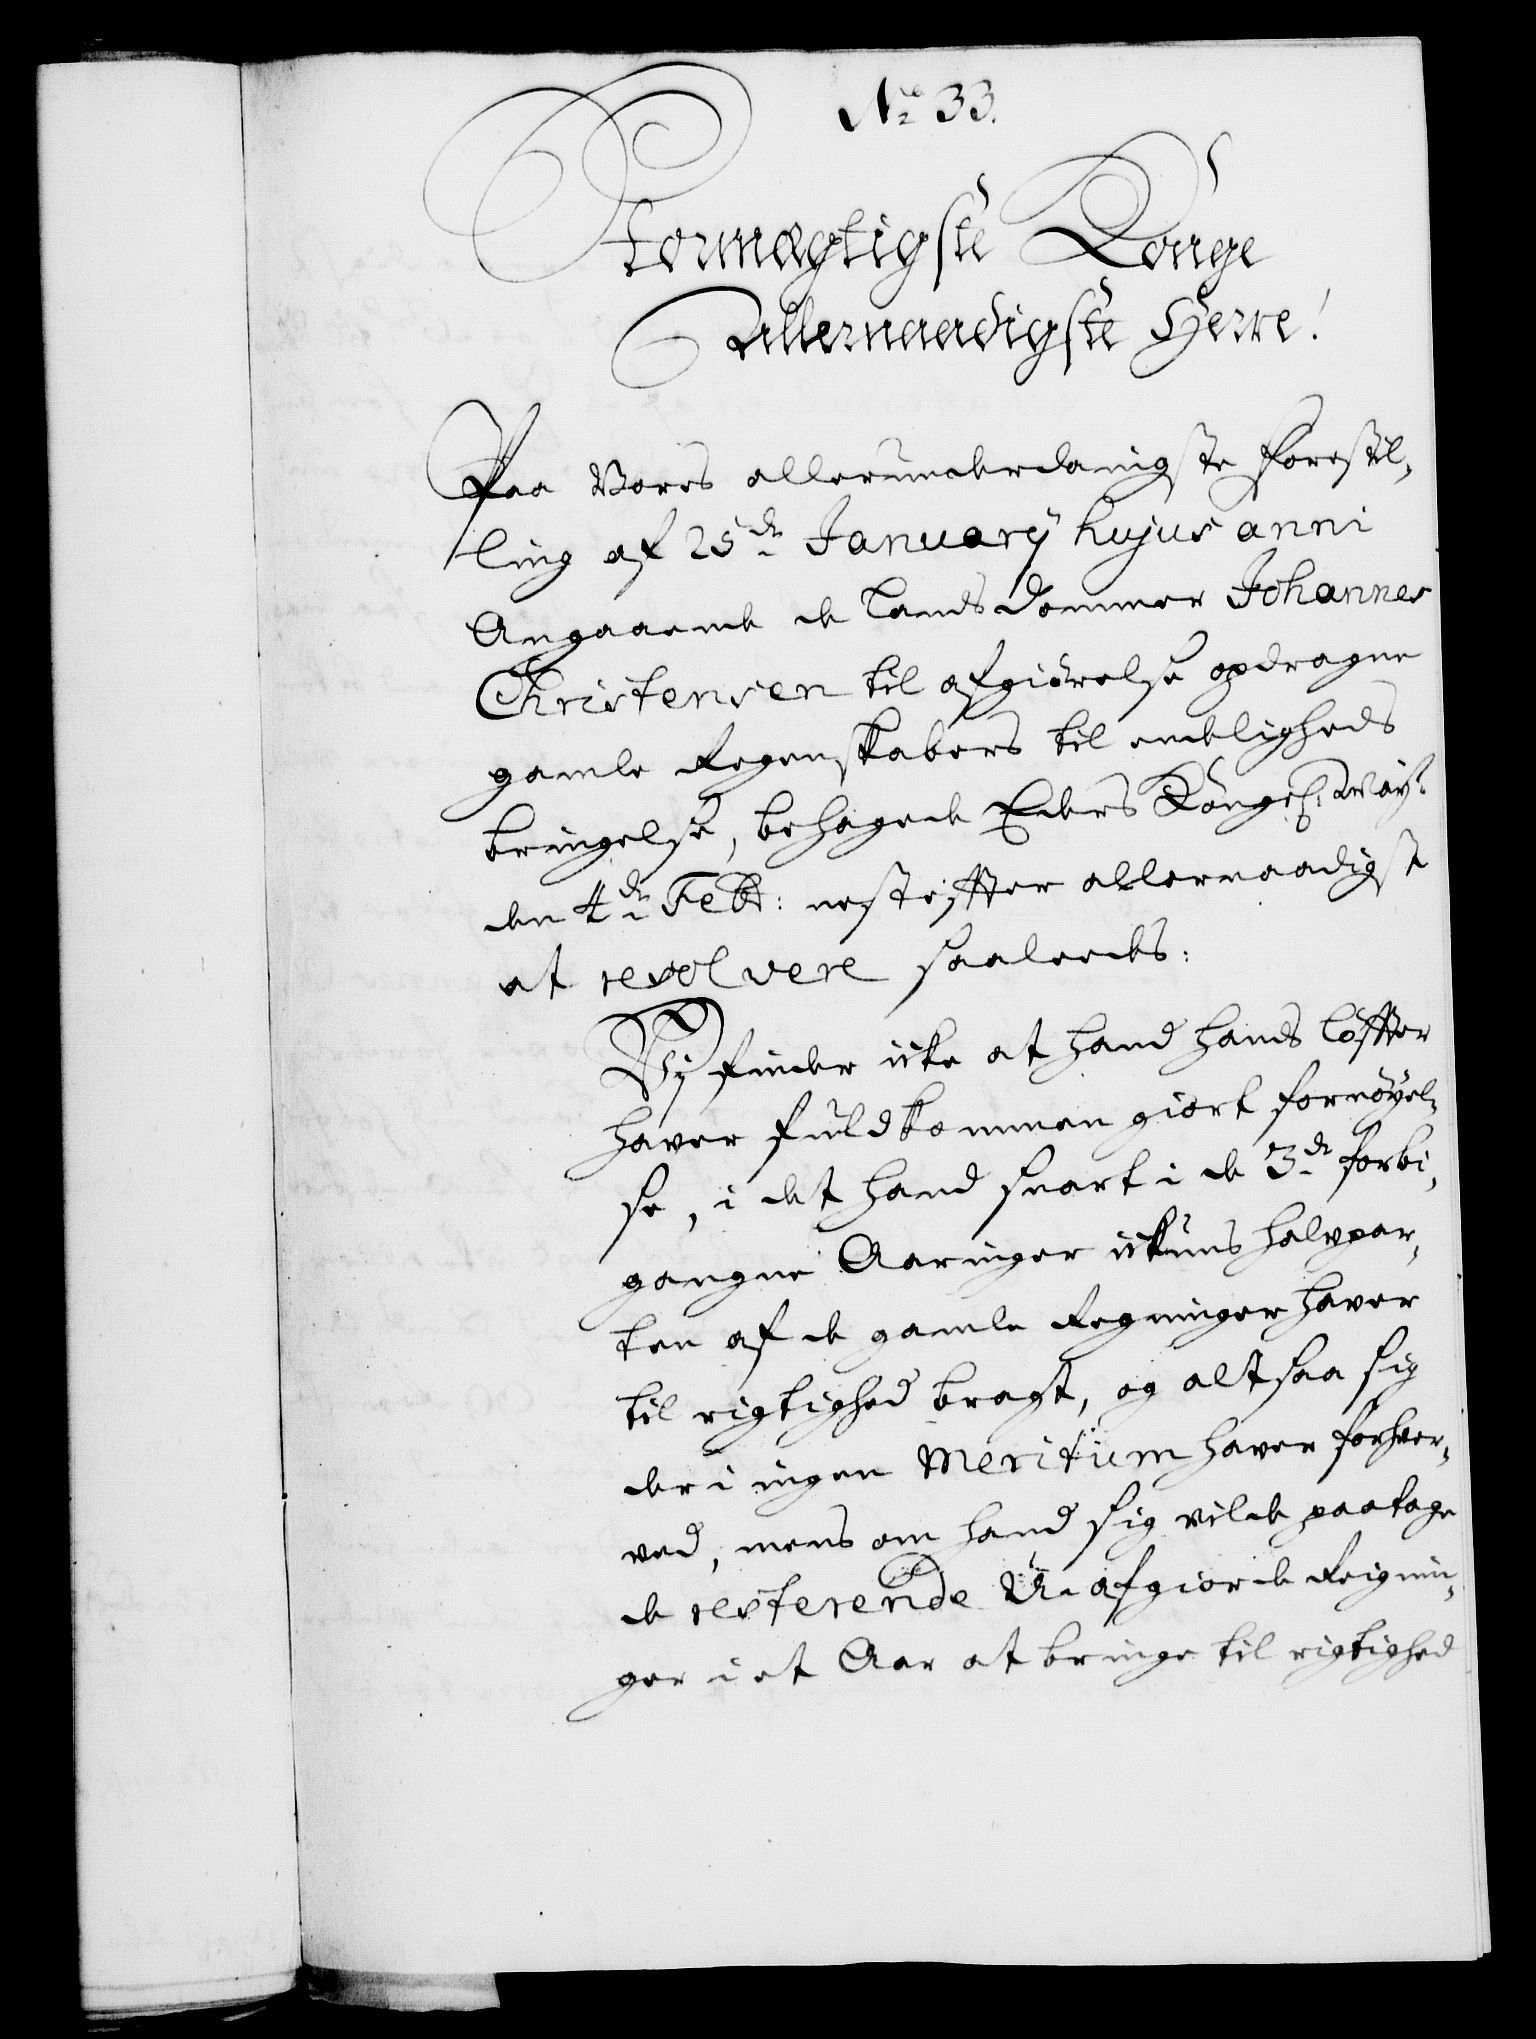 No 33.
Stormægtigste Konge
Allernaadigste Herre!
Paa Vores allerunderdanigste forestil,
ling af 25de Januarÿ hujus anni
Angaaende de Landsdommer Johannes
Christensen til afgiørelse opdragne
gamle Regenskabers til endeligheds
bringelse, behagede Eders Kongel: May:
den 4de Febr: nestefter allernaadigst
at resolvere saaleedes:
Vj finder icke at hand hands løffter
haver fuldkommen giort fornøyel-
se, i det hand snart i de 3de forbi,
gangne Aaringer ickuns halvpar,
ten af de gamle Regninger haver
til rigtighed bragt, og altsaa sig
der i ingen Meritum haver forhver,
ved, mens om hand sig vilde paatage
de resterende U-afgiorde Reignin,
ger i et Aar at bringe til rigtighed